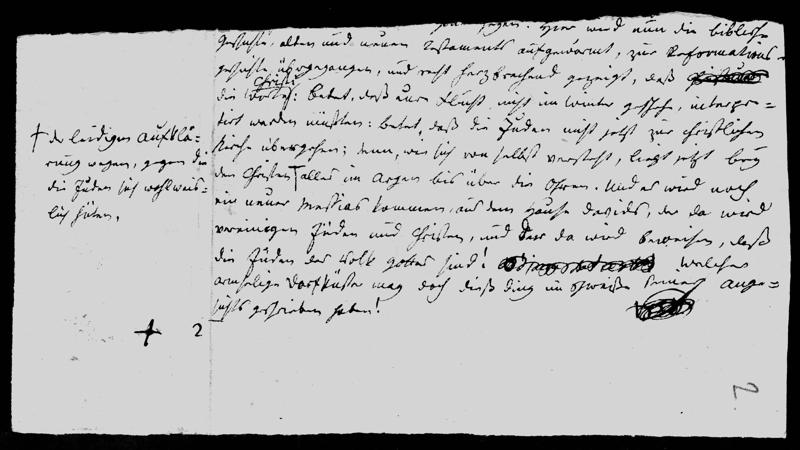 Hier wird nun die biblische
Geschichte, alten und neuen Testaments aufgewärmt, zur Reformations-
geschichte übergegangen, und recht herzbrechend gezeigt, daß
die Worte Christi: betet, daß eure Flucht nicht im Winter geschehe, interpre-
tirt werden müßten: betet, daß die Juden nicht jetzt zur christlichen
Kirche übergehen; denn, wie sich von selbst versteht, liegt jetzt bey
den Christen † alles im Argen bis über die Ohren. Und es wird noch
ein neuer Messias kommen, aus dem Hause Davids, der da wird
vereinigen Juden und Christen, und der da wird beweisen, daß
die Juden das Volk Gottes sind! Welcher
armselige Dorfküster mag doch dieß Ding im Schweiße seines Ange-
sichts geschrieben haben!
† der leidigen Aufklä-
rung wegen, gegen die
die Juden sich wohlweis-
lich hüten.
2
2.